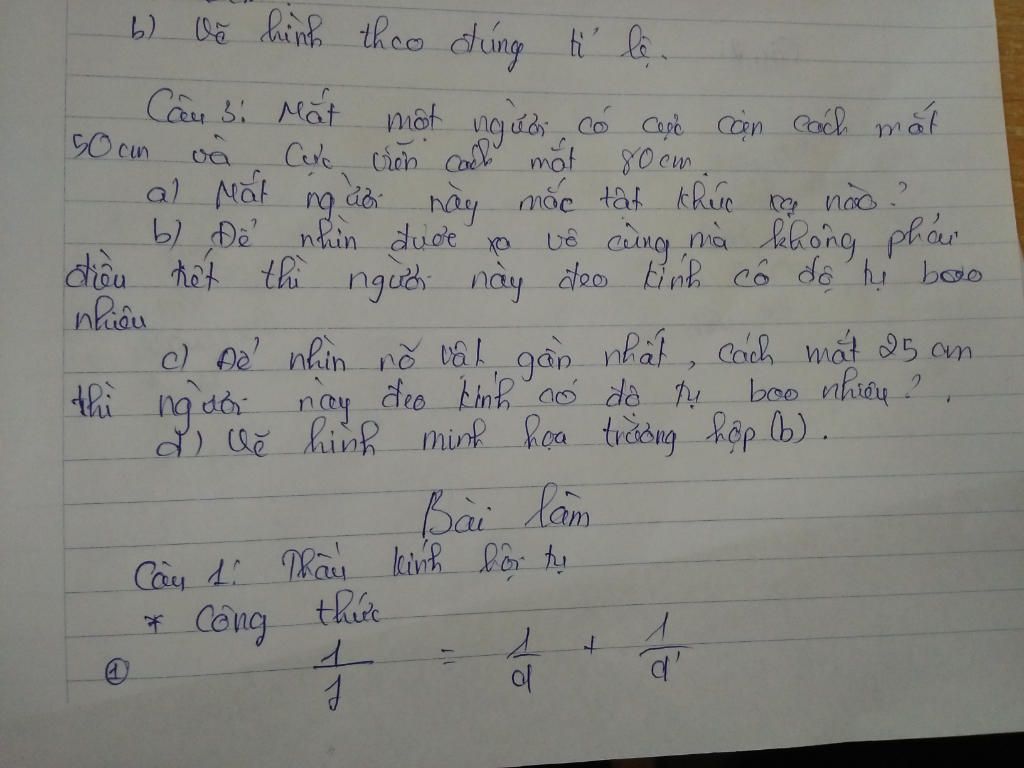 b) Vẽ hình theo đúng tỉ lệ.
Câu 3: Mắt một người có cực cận cách mắt
50cm và cực viễn cách mắt 80cm.
a) Mắt người này mắc tật khúc xạ nào?
b) Để nhìn được xa vô cùng mà không phải
điều tiết thì người này đeo kính có độ tụ bao
nhiêu
c) Để nhìn rõ vật gần nhất, cách mắt 25 cm
thì người này đeo kính có độ tụ bao nhiêu?
d) Vẽ hình minh họa trường hợp (b).
Bài làm
Câu 1: Thấu kính hội tụ
* Công thức
① 1/f = 1/d + 1/d'